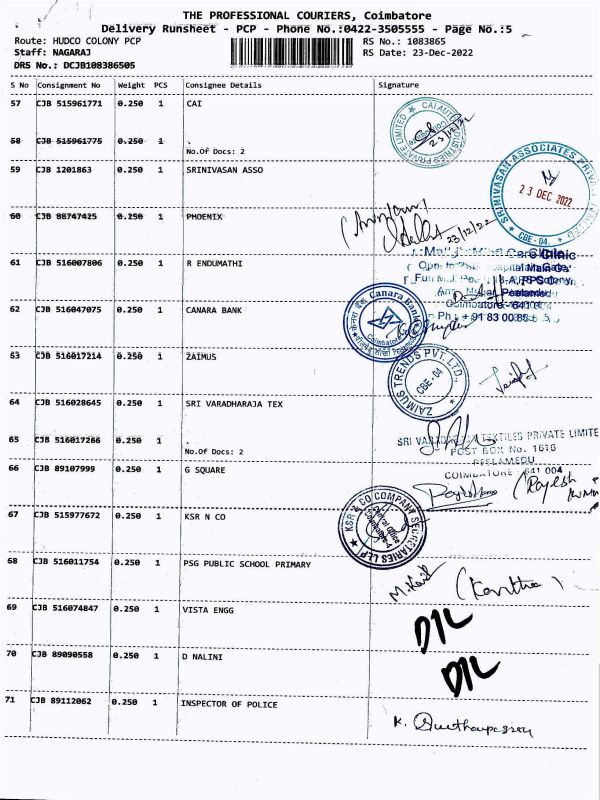 THE PROFESSIONAL COURIERS, Coimbatore
Delivery Runsheet - PCP - Phone No.:0422-3505555 - Page No.:5
Route: HUDCO COLONY PCP RS No.: 1083865
Staff: NAGARAJ RS Date: 23-Dec-2022
DRS No.: DCJB108386505
S No Consignment No Weight PCS Consignee Details Signature
57 CJB 515961771 0.250 1 CAI
58 CJB 515961775 0.250 1
No.Of Docs: 2
23/12/22
59 CJB 1201863 0.250 1 SRINIVASAN ASSO
SRINIVASAN ASSOCIATES
23 DEC 2022
CBE-04.
60 CJB 88747425 0.250 1 PHOENIX
23/12/22
61 CJB 516007806 0.250 1 R ENDUMATHI
Care Clinic
Peelamedu
Coimbatore
62 CJB 516047075 0.250 1 CANARA BANK
Canara Bank
Coimbatore
63 CJB 516017214 0.250 1 ZAIMUS
ZAIMUS TRENDS PVT. LTD.,
CBE-04
64 CJB 516028645 0.250 1 SRI VARADHARAJA TEX
65 CJB 516017266 0.250 1
No.Of Docs: 2
SRI TEXTILES PRIVATE LIMITE
POST BOX No. 1616
PEELAMEDU
COIMBATORE 641 004
66 CJB 89107999 0.250 1 G SQUARE
(Rajesh
67 CJB 515977672 0.250 1 KSR N CO
KSR & CO COMPANY SECRETARIES LLP
68 CJB 516011754 0.250 1 PSG PUBLIC SCHOOL PRIMARY
69 CJB 516074847 0.250 1 VISTA ENGG
D/L
70 CJB 89090558 0.250 1 D NALINI
D/L
71 CJB 89112062 0.250 1 INSPECTOR OF POLICE